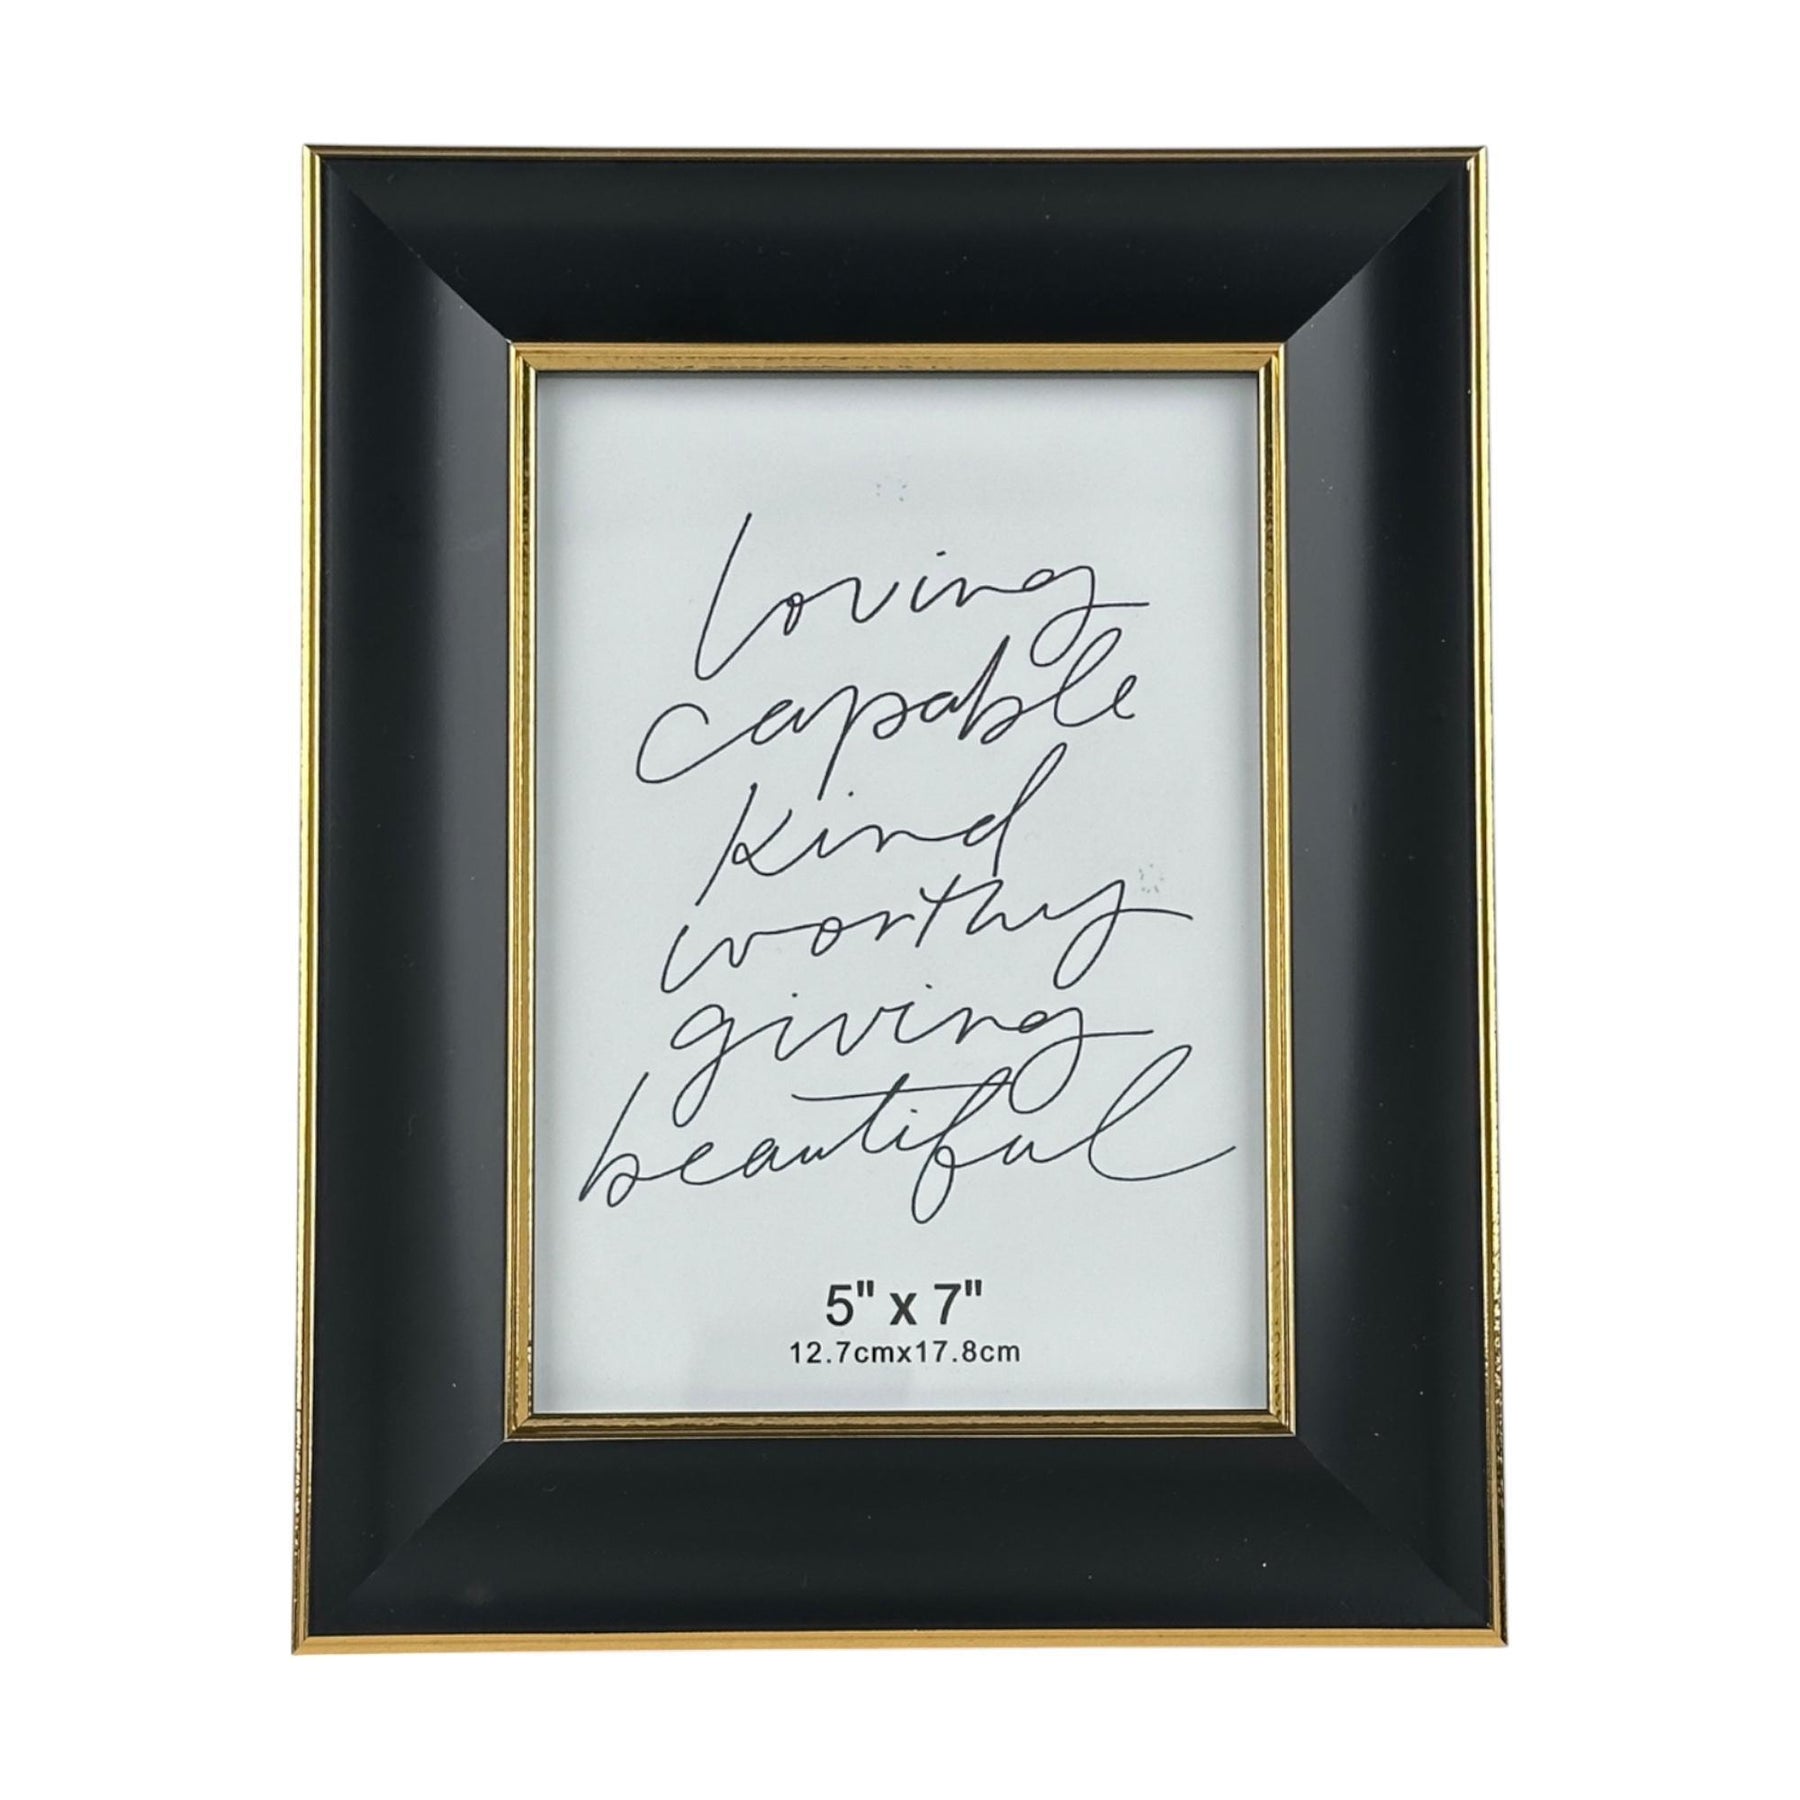 loving
capable
kind
worthy
giving
beautiful
5" x 7"
12.7cmx17.8cm